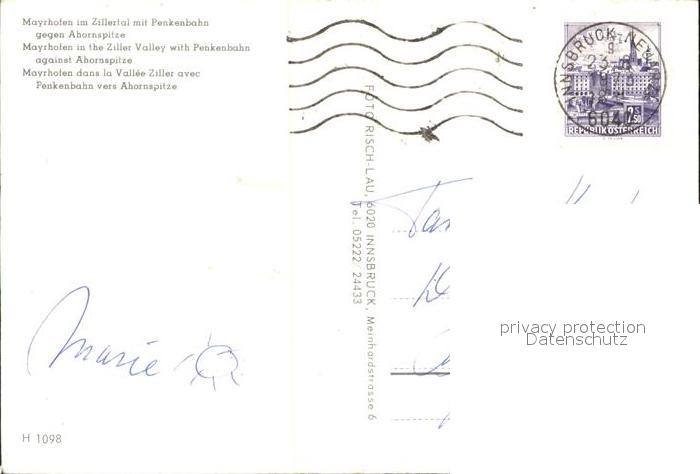 Mayrhofen im Zillertal mit Penkenbahn
gegen Ahornspitze
Mayrhofen in the Ziller Valley with Penkenbahn
against Ahornspitze
Mayrhofen dans la Vallée Ziller avec
Penkenbahn vers Ahornspitze
INNSBRUCK-NEUARZL
6040
2.50
REPUBLIK ÖSTERREICH
FOTO RISCH-LAU, 6020 INNSBRUCK, Meinhardstrasse 6
Tel. 05222 24433
Marie
privacy protection
Datenschutz
H 1098